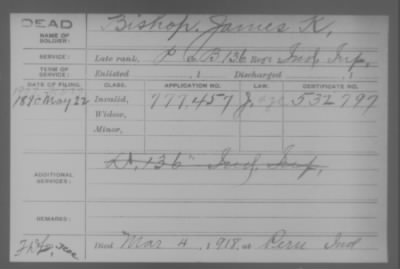 DEAD
NAME OF SOLDIER: Bishop, James K,
SERVICE: Late rank, P Co B, 136 Reg't Ind. Inf,
TERM OF SERVICE: Enlisted , 1 Discharged , 1
DATE OF FILING. CLASS. APPLICATION NO. LAW. CERTIFICATE NO.
1890 May 22 Invalid, 777,457 J. 532797
Widow,
Minor,
ADDITIONAL SERVICES: D. 136" Ind. Inf,
REMARKS:
Died Mar 4, 1918, at Peru Ind